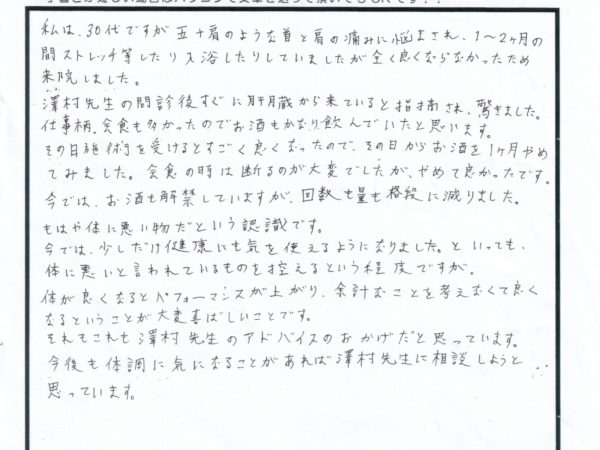 私は、30代ですが五十肩のような首と肩の痛みに悩まされ、1～2ヶ月の
間ストレッチ等したり入浴したりしていましたが全く良くならなかったため
来院しました。
澤村先生の問診後すぐに肝臓から来ていると指摘され、驚きました。
仕事柄、会食も多かったのでお酒もかなり飲んでいたと思います。
その日施術を受けるとすごく良くなったので、その日からお酒を1ヶ月やめ
てみました。会食の時は断るのが大変でしたが、やめて良かったです。
今では、お酒も解禁していますが、回数も量も格段に減りました。
もはや体に悪い物だという認識です。
今では、少しだけ健康にも気を使えるようになりました。といっても、
体に悪いと言われているものを控えるという程度ですが。
体が良くなるとパフォーマンスが上がり、余計なことを考えなくて良く
なるということが大変喜ばしいことです。
それもこれも澤村先生のアドバイスのおかげだと思っています。
今後も体調に気になることがあれば澤村先生に相談しようと
思っています。